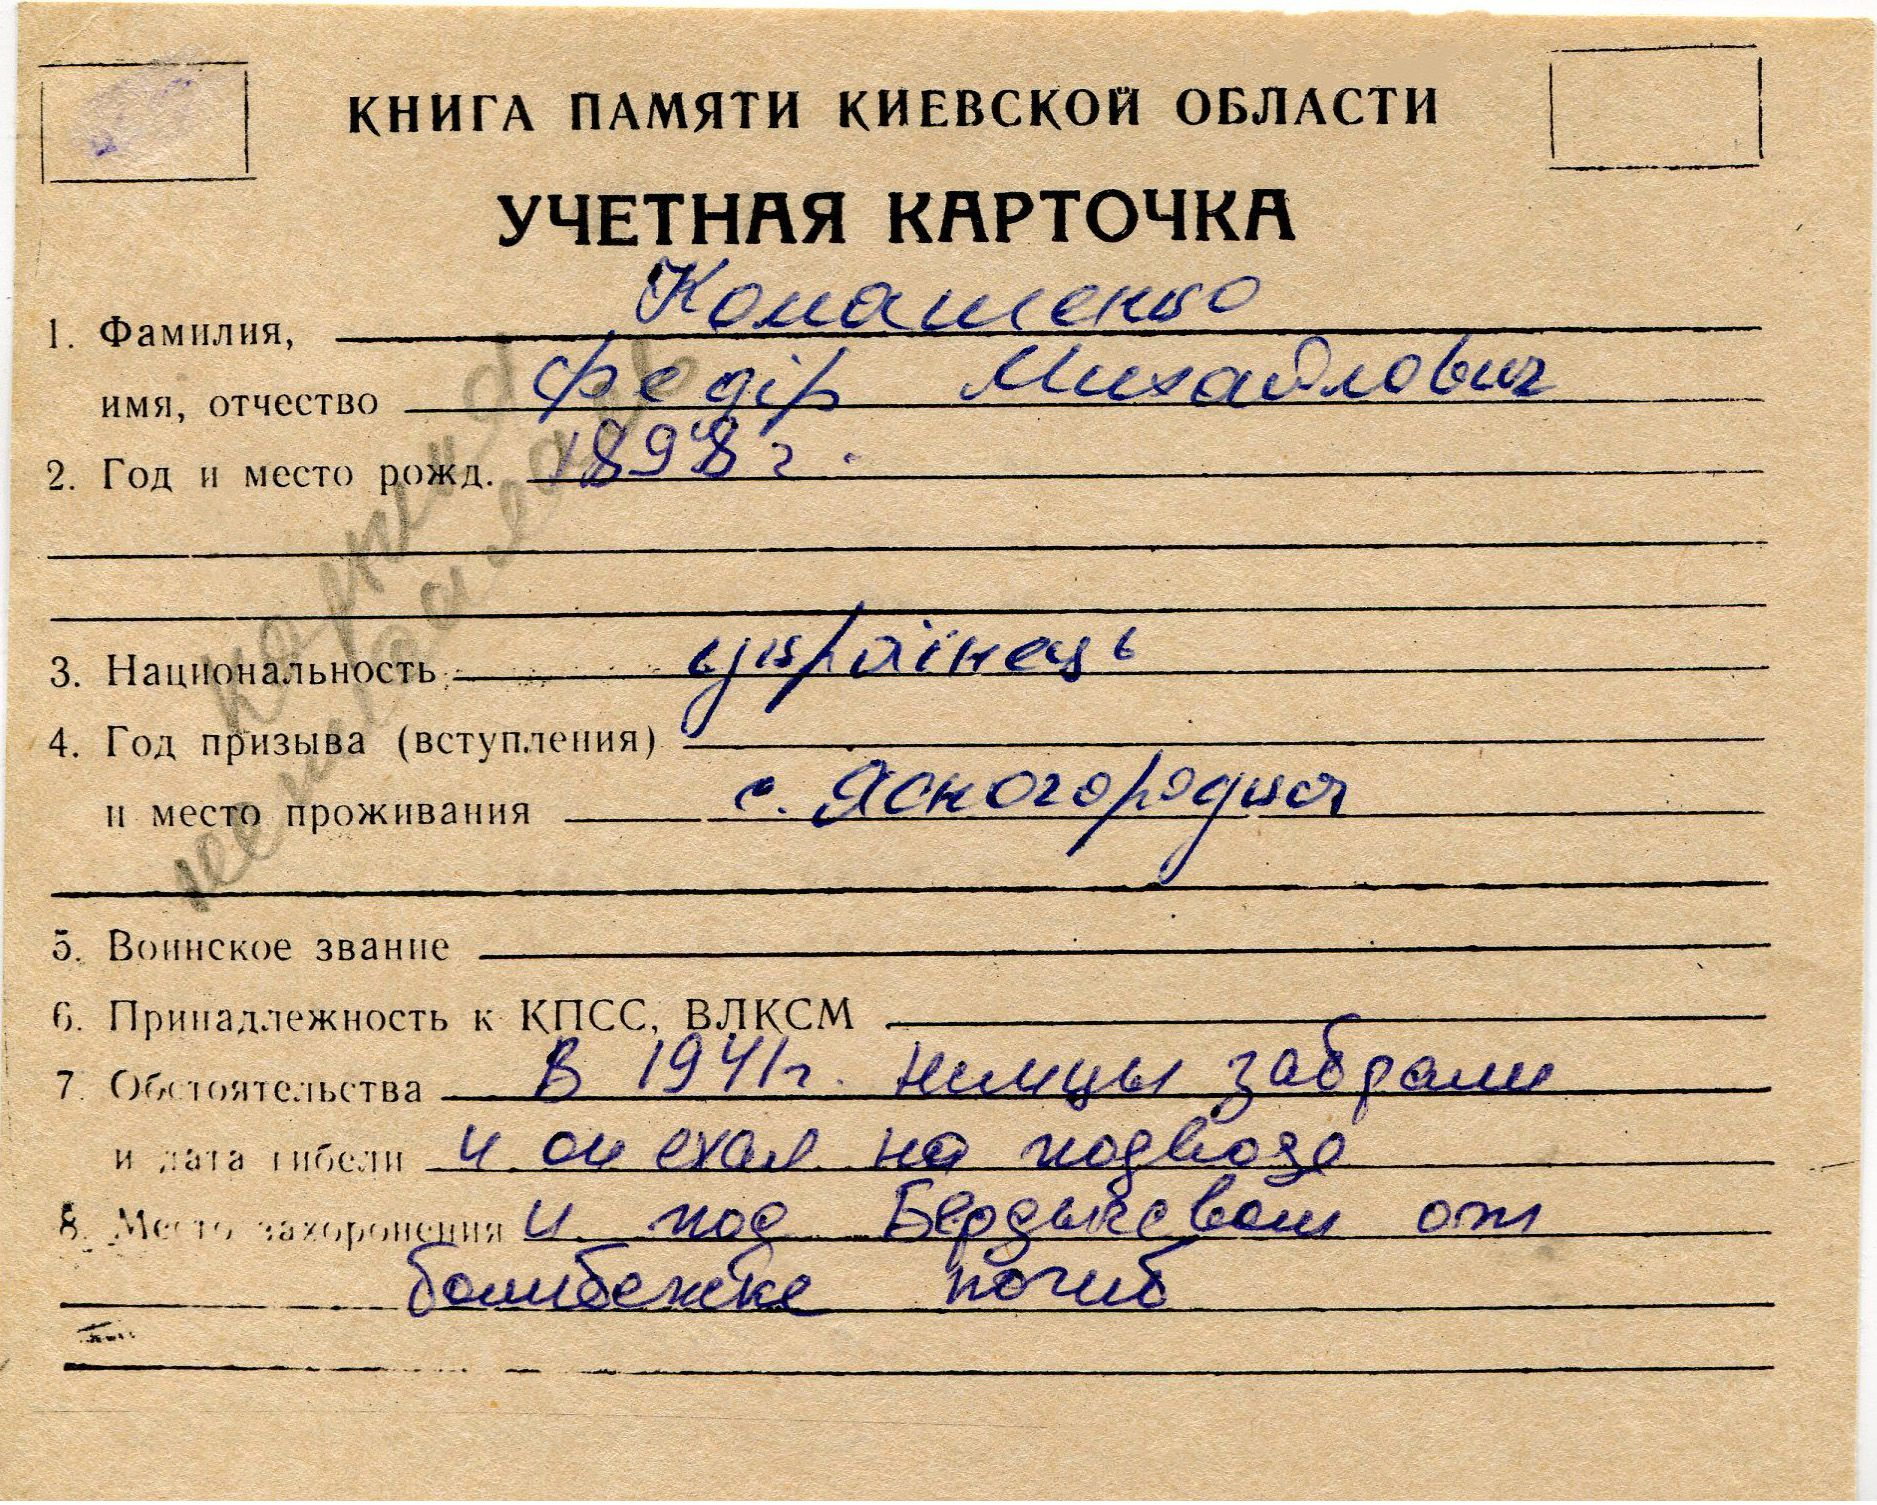 КНИГА ПАМЯТИ КИЕВСКОЙ ОБЛАСТИ
УЧЕТНАЯ КАРТОЧКА
1. Фамилия, Комашенко
имя, отчество Федір Михайлович
2. Год и место рожд. 1898 г.
3. Национальность українець
4. Год призыва (вступления)
и место проживания с. Ясногородка
5. Воинское звание
6. Принадлежность к КПСС, ВЛКСМ
7. Обстоятельства В 1941 г. нимцы забрали
и дата гибели и он ехал на подводе
8. Место захоронения и под Бердычевом от
бомбежке погиб